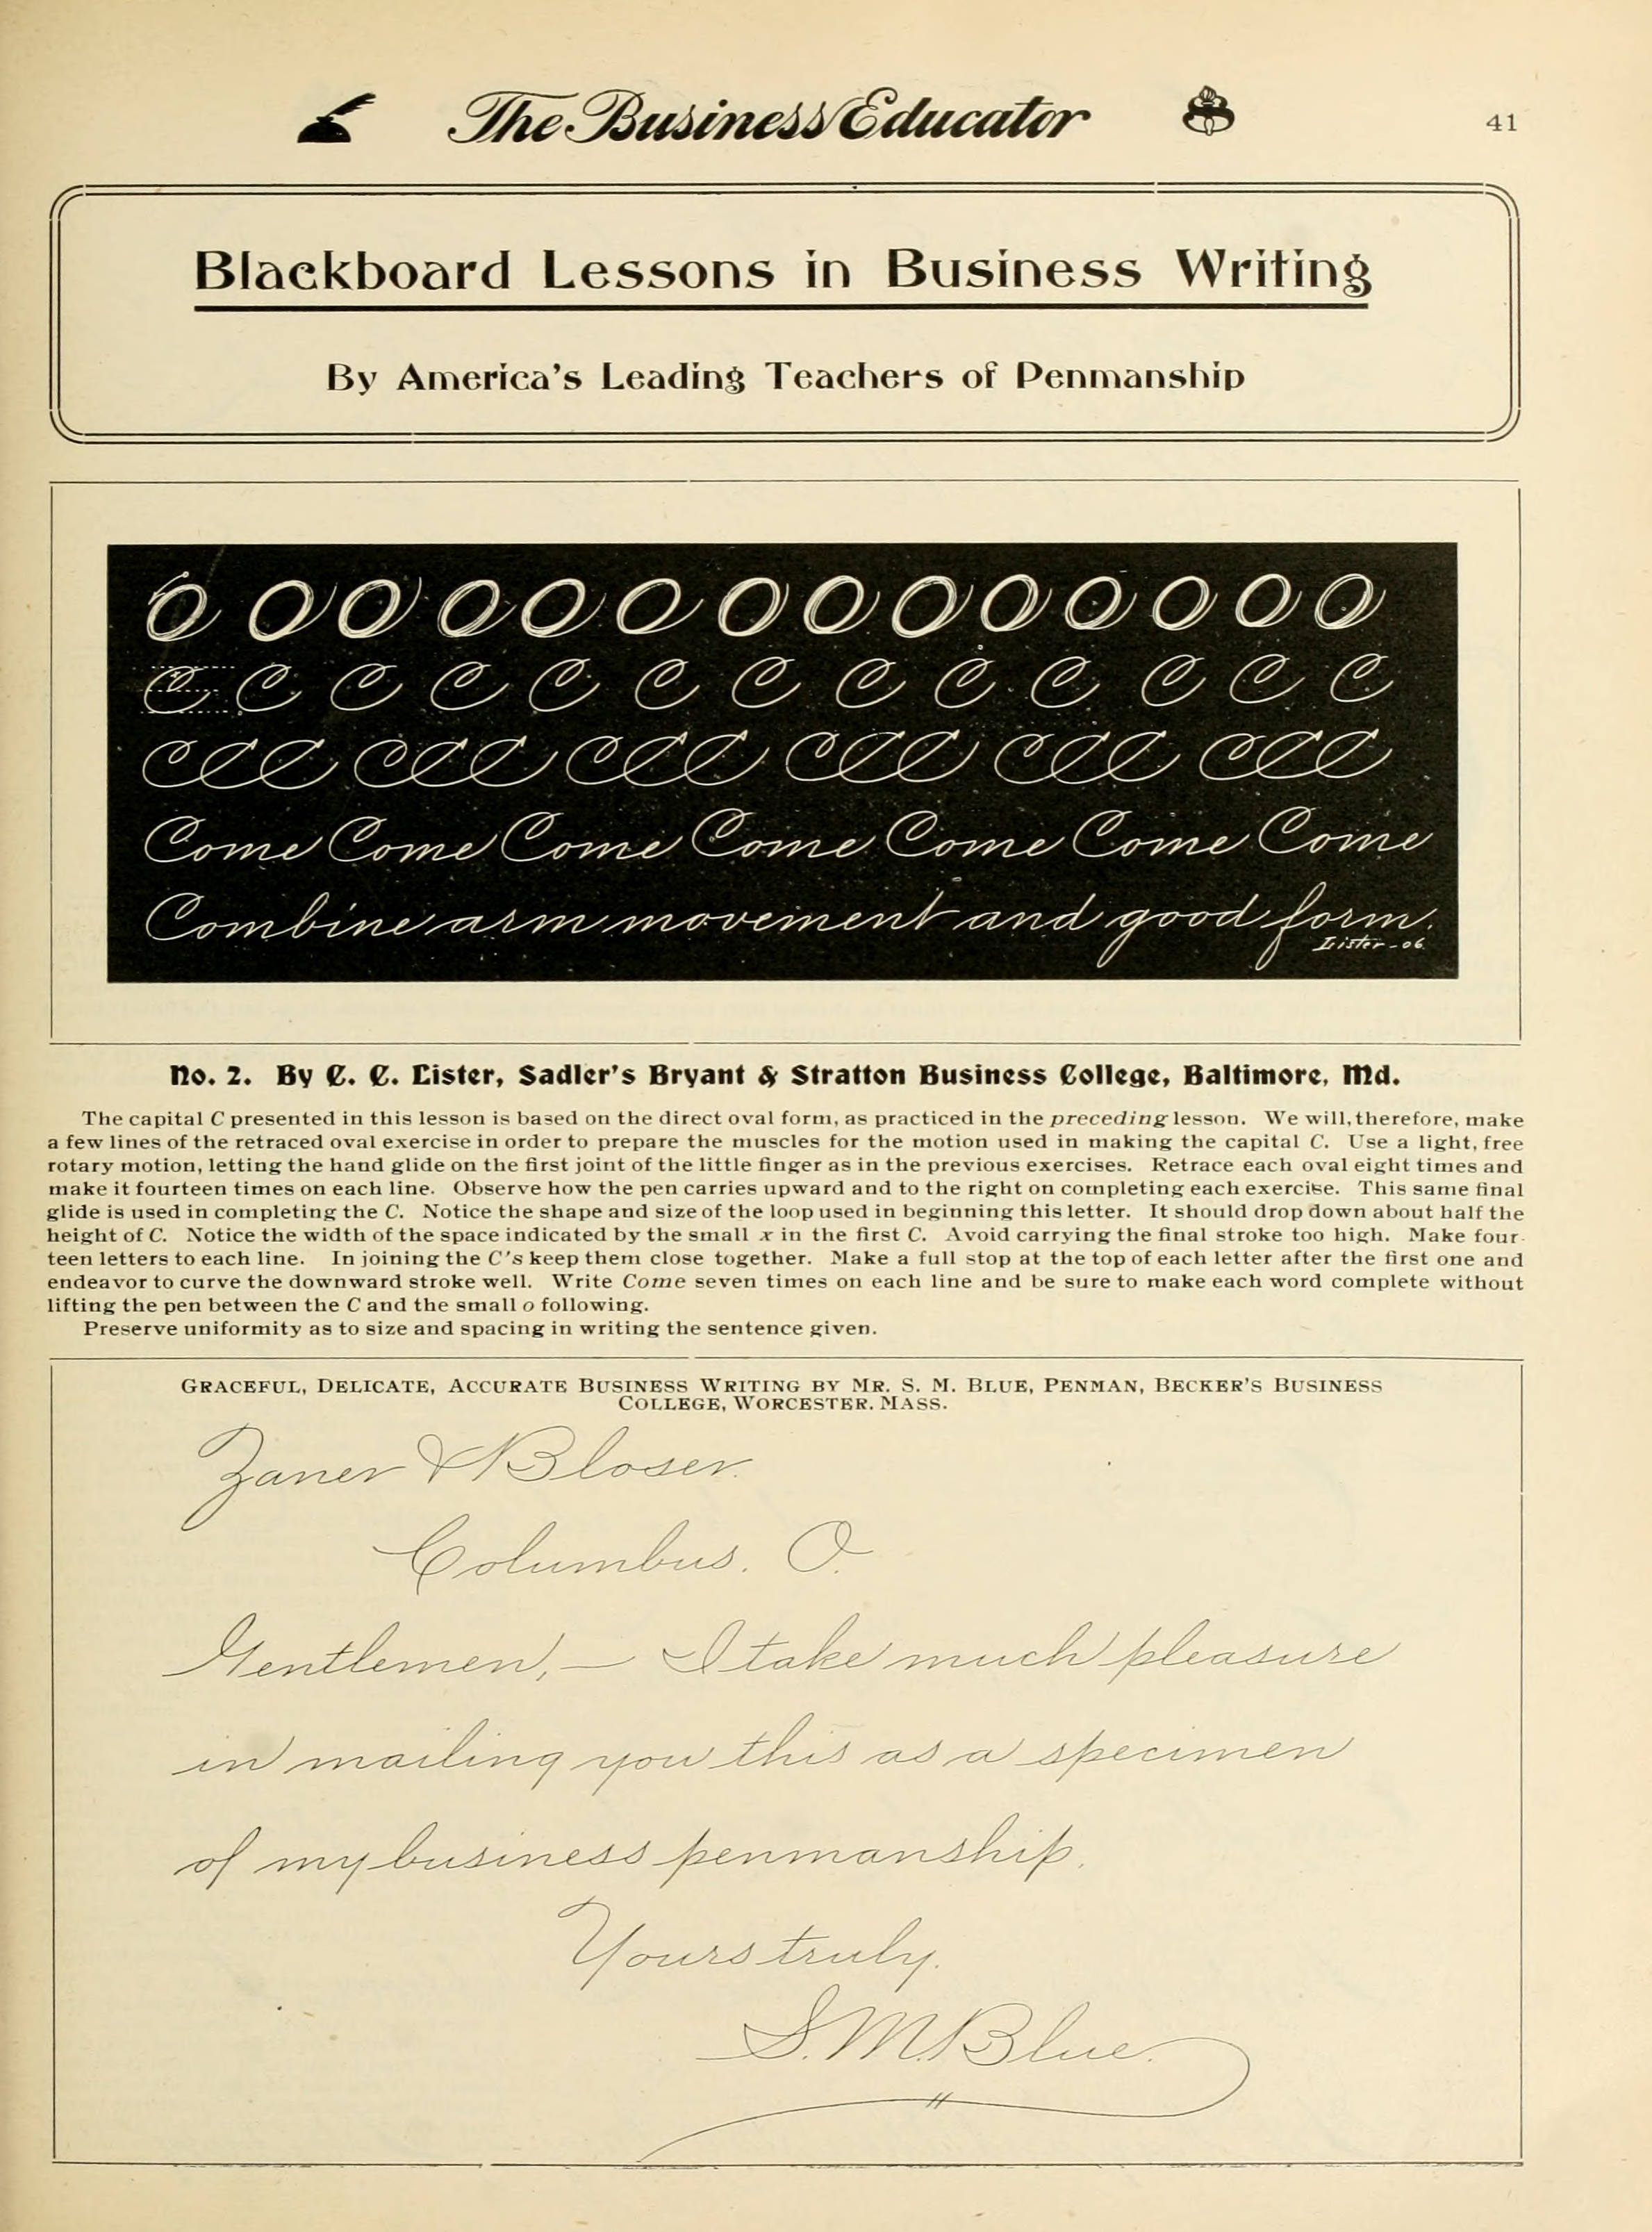 The Business Educator
41
Blackboard Lessons in Business Writing
By America's Leading Teachers of Penmanship
O O O O O O O O O O O O O O
C C C C C C C C C C C C C
CCC CCC CCC CCC CCC CCC
Come Come Come Come Come Come Come
Combine arm movement and good form.
Lister-06.
No. 2. By C. C. Lister, Sadler's Bryant & Stratton Business College, Baltimore, Md.
The capital C presented in this lesson is based on the direct oval form, as practiced in the preceding lesson. We will, therefore, make
a few lines of the retraced oval exercise in order to prepare the muscles for the motion used in making the capital C. Use a light, free
rotary motion, letting the hand glide on the first joint of the little finger as in the previous exercises. Retrace each oval eight times and
make it fourteen times on each line. Observe how the pen carries upward and to the right on completing each exercise. This same final
glide is used in completing the C. Notice the shape and size of the loop used in beginning this letter. It should drop down about half the
height of C. Notice the width of the space indicated by the small x in the first C. Avoid carrying the final stroke too high. Make four-
teen letters to each line. In joining the C's keep them close together. Make a full stop at the top of each letter after the first one and
endeavor to curve the downward stroke well. Write Come seven times on each line and be sure to make each word complete without
lifting the pen between the C and the small o following.
Preserve uniformity as to size and spacing in writing the sentence given.
GRACEFUL, DELICATE, ACCURATE BUSINESS WRITING BY MR. S. M. BLUE, PENMAN, BECKER'S BUSINESS
COLLEGE, WORCESTER. MASS.
Zaner & Bloser.
Columbus. O.
Gentlemen, — I take much pleasure
in mailing you this as a specimen
of my business penmanship.
Yours truly.
S. M. Blue.